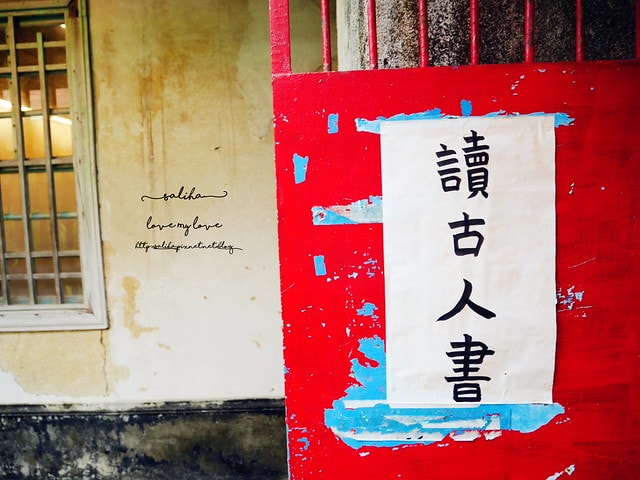 saliha
love my love
http:saliha.pixnet.net/blog
讀古人書